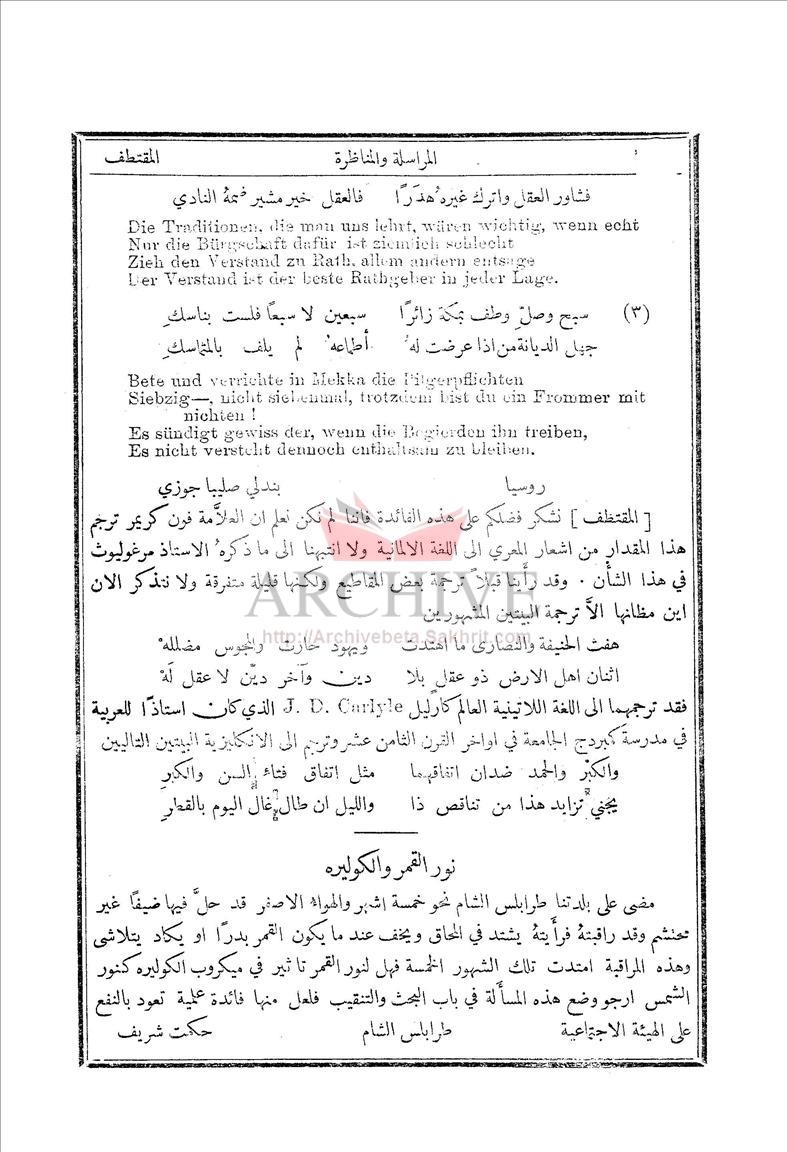 المراسلة والمناظرة المقتطف
فشاور العقل واترك غيرهُ هدَرًا فالعقل خير مشير ضمهُ النادي
Die Traditionen, die man uns lehrt, wären wichtig, wenn echt
Nur die Bürgschaft dafür ist ziemlich schlecht
Zieh den Verstand zu Rath, allem andern entsage
Der Verstand ist der beste Rathgeber in jeder Lage.
(٣) سبح وصلّ وطف بمكة زائرًا سبعين لا سبعًا فلست بناسكِ
جهل الديانة من اذا عرضت لهُ أطماعهُ لم يلف بالمتماسكِ
Bete und verrichte in Mekka die Pilgerpflichten
Siebzig—, nicht siebenmal, trotzdem bist du ein Frommer mit
nichten !
Es sündigt gewiss der, wenn die Begierden ihn treiben,
Es nicht versteht dennoch enthaltsam zu bleiben.
روسيا بندلي صليبا جوزي
[المقتطف] نشكر فضلكم على هذه الفائدة فاننا لم نكن نعلم ان العلاَّمة فون كريمر ترجم
هذا المقدار من اشعار المعري الى اللغة الالمانية ولا انتبهنا الى ما ذكرهُ الاستاذ مرغوليوث
في هذا الشأن . وقد رأينا قبلاً ترجمة بعض المقاطيع ولكنها قليلة متفرقة ولا نتذكر الان
اين مظانها الاَّ ترجمة البيتين المشهورين
هفت الحنيفة والنصارى ما اهتدت ويهود حارت والمجوس مضللهْ
اثنان اهل الارض ذو عقل بلا دين وآخر ديّن لا عقل لَهْ
فقد ترجمهما الى اللغة اللاتينية العالم كارليل J. D. Carlyle الذي كان استاذًا للعربية
في مدرسة كمبردج الجامعة في اواخر القرن الثامن عشر وترجم الى الانكليزية البيتين التاليين
والكبْر والحمد ضدان اتفاقهما مثل اتفاق فتاء السن والكبرِ
يجنى تزايد هذا من تناقص ذا والليل ان طال غال اليوم بالقصرِ
نور القمر والكوليره
مضى على بلدتنا طرابلس الشام نحو خمسة اشهر والهواء الاصفر قد حلَّ فيها ضيفًا غير
محتشم وقد راقبتهُ فرأيتهُ يشتد في المحاق ويخف عند ما يكون القمر بدرًا او يكاد يتلاشى
وهذه المراقبة امتدت تلك الشهور الخمسة فهل لنور القمر تاثير في ميكروب الكوليره كنور
الشمس ارجو وضع هذه المسألة في باب البحث والتنقيب فلعل منها فائدة علمية تعود بالنفع
على الهيئة الاجتماعية طرابلس الشام حكمت شريف
ARCHIVE
http://Archivebeta.Sakhrit.com